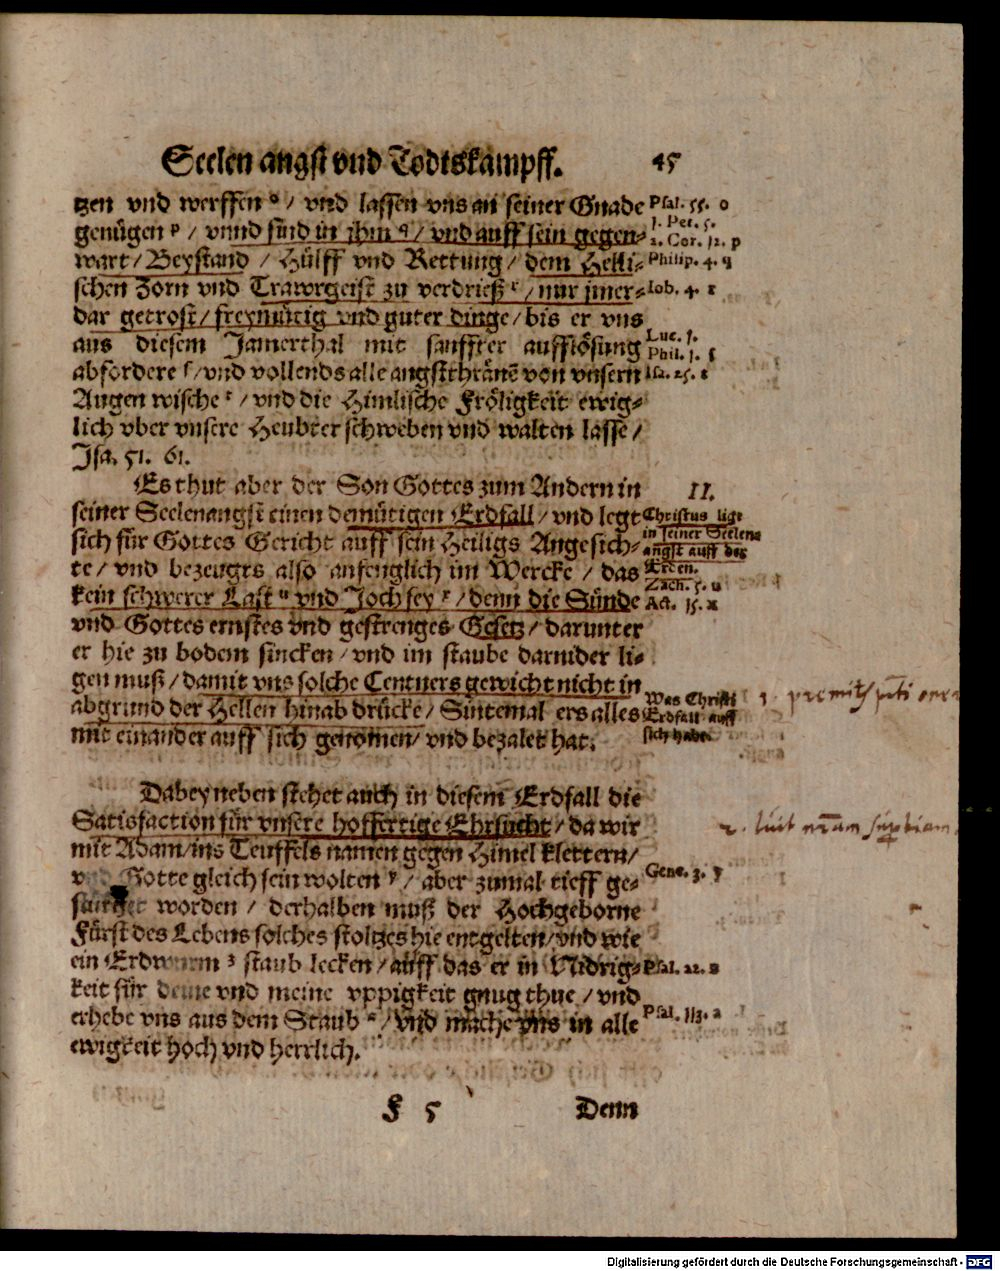 Seelen angst vnd Todtskampff. 45
tzen vnd werffen o / vnd lassen vns an seiner Gnade
Psal. 55. o
genügen p / vnnd sind in jhm q / vnd auff sein gegen⸗
1. Pet. 5.
2. Cor. 12. p
wart / Beystand / Hülff vnd Rettung / dem Helli⸗
Philip. 4. q
schen Zorn vnd Trawrgeist zu verdrieß r / nur jmer⸗
Iob. 4. r
dar getrost / freymütig vnd guter dinge / bis er vns
aus diesem Jamerthal mit sanffter aufflösung
Luc. 1.
Phil. 1. s
abfordere s / vnd vollends alle angstthränē von vnsern
Isa. 25. t
Augen wische t / vnd die Himlische Fröligkeit ewig⸗
lich vber vnsere Heubter schweben vnd walten lasse /
Jsa. 51. 61.
Es thut aber der Son Gottes zum Andern in
II.
seiner Seelenangst einen demütigen Erdfall / vnd legt
Christus ligt
in seiner Seelen⸗
angst auff der
Erden.
sich für Gottes Gericht auff sein Heiligs Angesich⸗
te / vnd bezeugts also anfenglich im Wercke / das
kein schwerer Last u vnd Joch sey x / denn die Sünde
Zach. 5. u
Act. 15. x
vnd Gottes ernstes vnd gestrenges Gesetz / darunter
er hie zu bodem sincken / vnd im staube darnider li⸗
gen muß / damit vns solche Centners gewicht nicht in
abgrund der Hellen hinab drücke / Sintemal ers alles
Was Christi
Erdfall auff
sich habe.
mit einander auff sich genomen / vnd bezalet hat.
Dabeyneben stehet auch in diesem Erdfall die
Satisfaction für vnsere hoffertige Ehrsucht / da wir
2. luit
mit Adam / ins Teuffels namen gegen Himel klettern /
Gotte gleich sein wolten y / aber zumal tieff ge⸗
Gene. 3. y
worden / derhalben muß der Hochgeborne
Fürst des Lebens solches stoltzes hie entgelten / vnd wie
ein Erdwurm z staub lecken / auff das er in Nidrig⸗
Psal. 22. z
keit für deine vnd meine vppigkeit gnug thue / vnd
erhebe vns aus dem Staub a / vnd mache vns in alle
Psal. 113. a
ewigkeit hoch vnd herrlich.
F 5 Denn
Digitalisierung gefördert durch die Deutsche Forschungsgemeinschaft - DFG